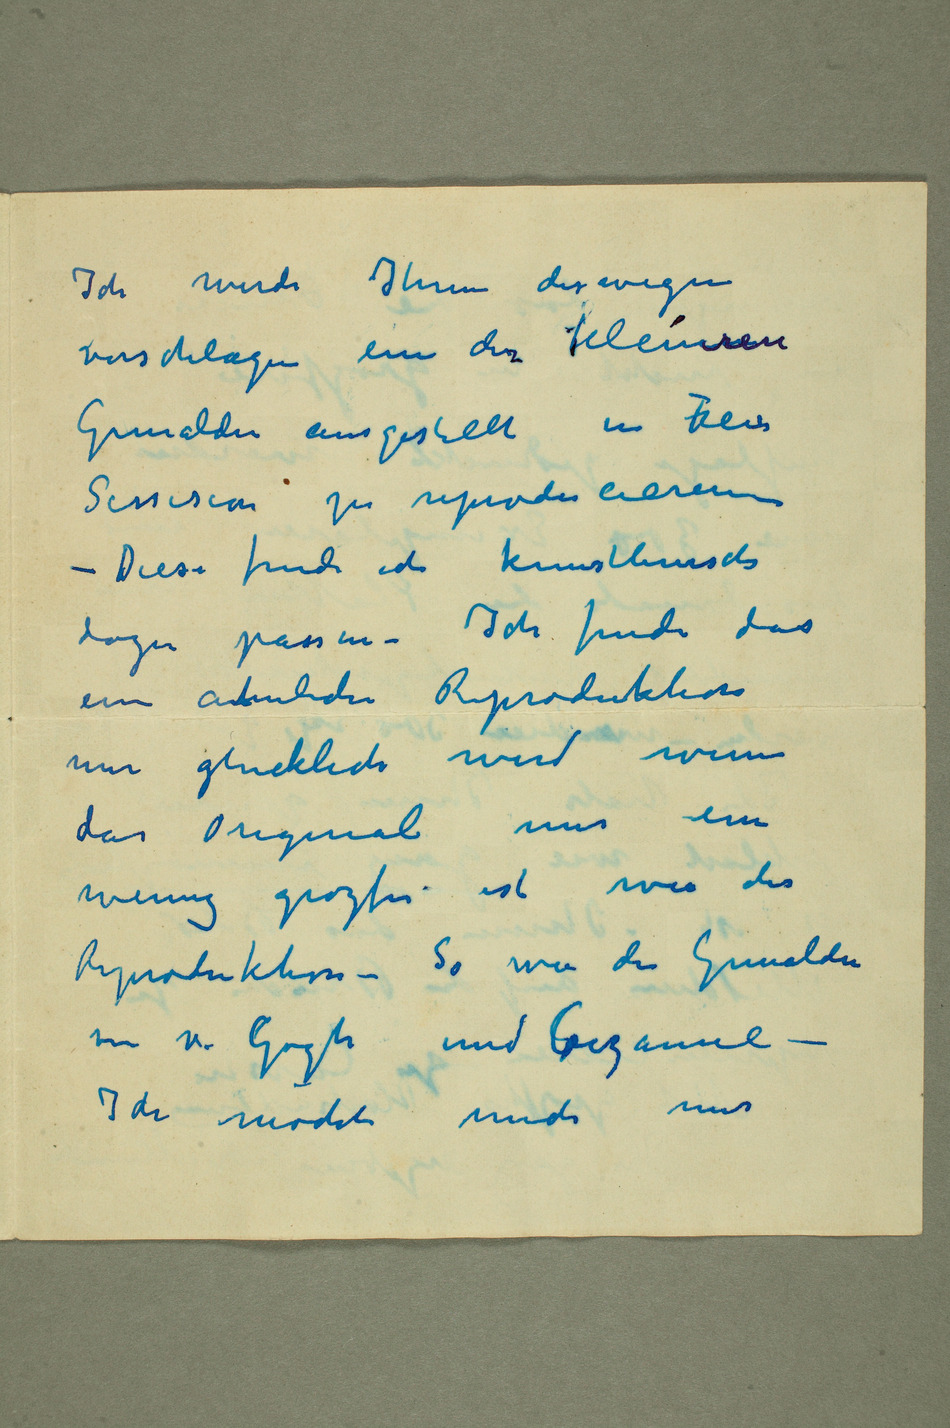 Ich werde Ihnen deswegen
vorschlagen ein der kleineren
Gemälden ausgestellt in
Sessesion zu reproducieren
– Diese finde ich kunstlerisch
dazu passen – Ich finde das
eine aehnliche Reproduktion
nur glucklich wird wenn
das Original nur ein
wenig grozfer ist wie die
Reproduktion – So wie die Gemälden
von v. Gogh und Cezanne –
Ich möchte mich nur